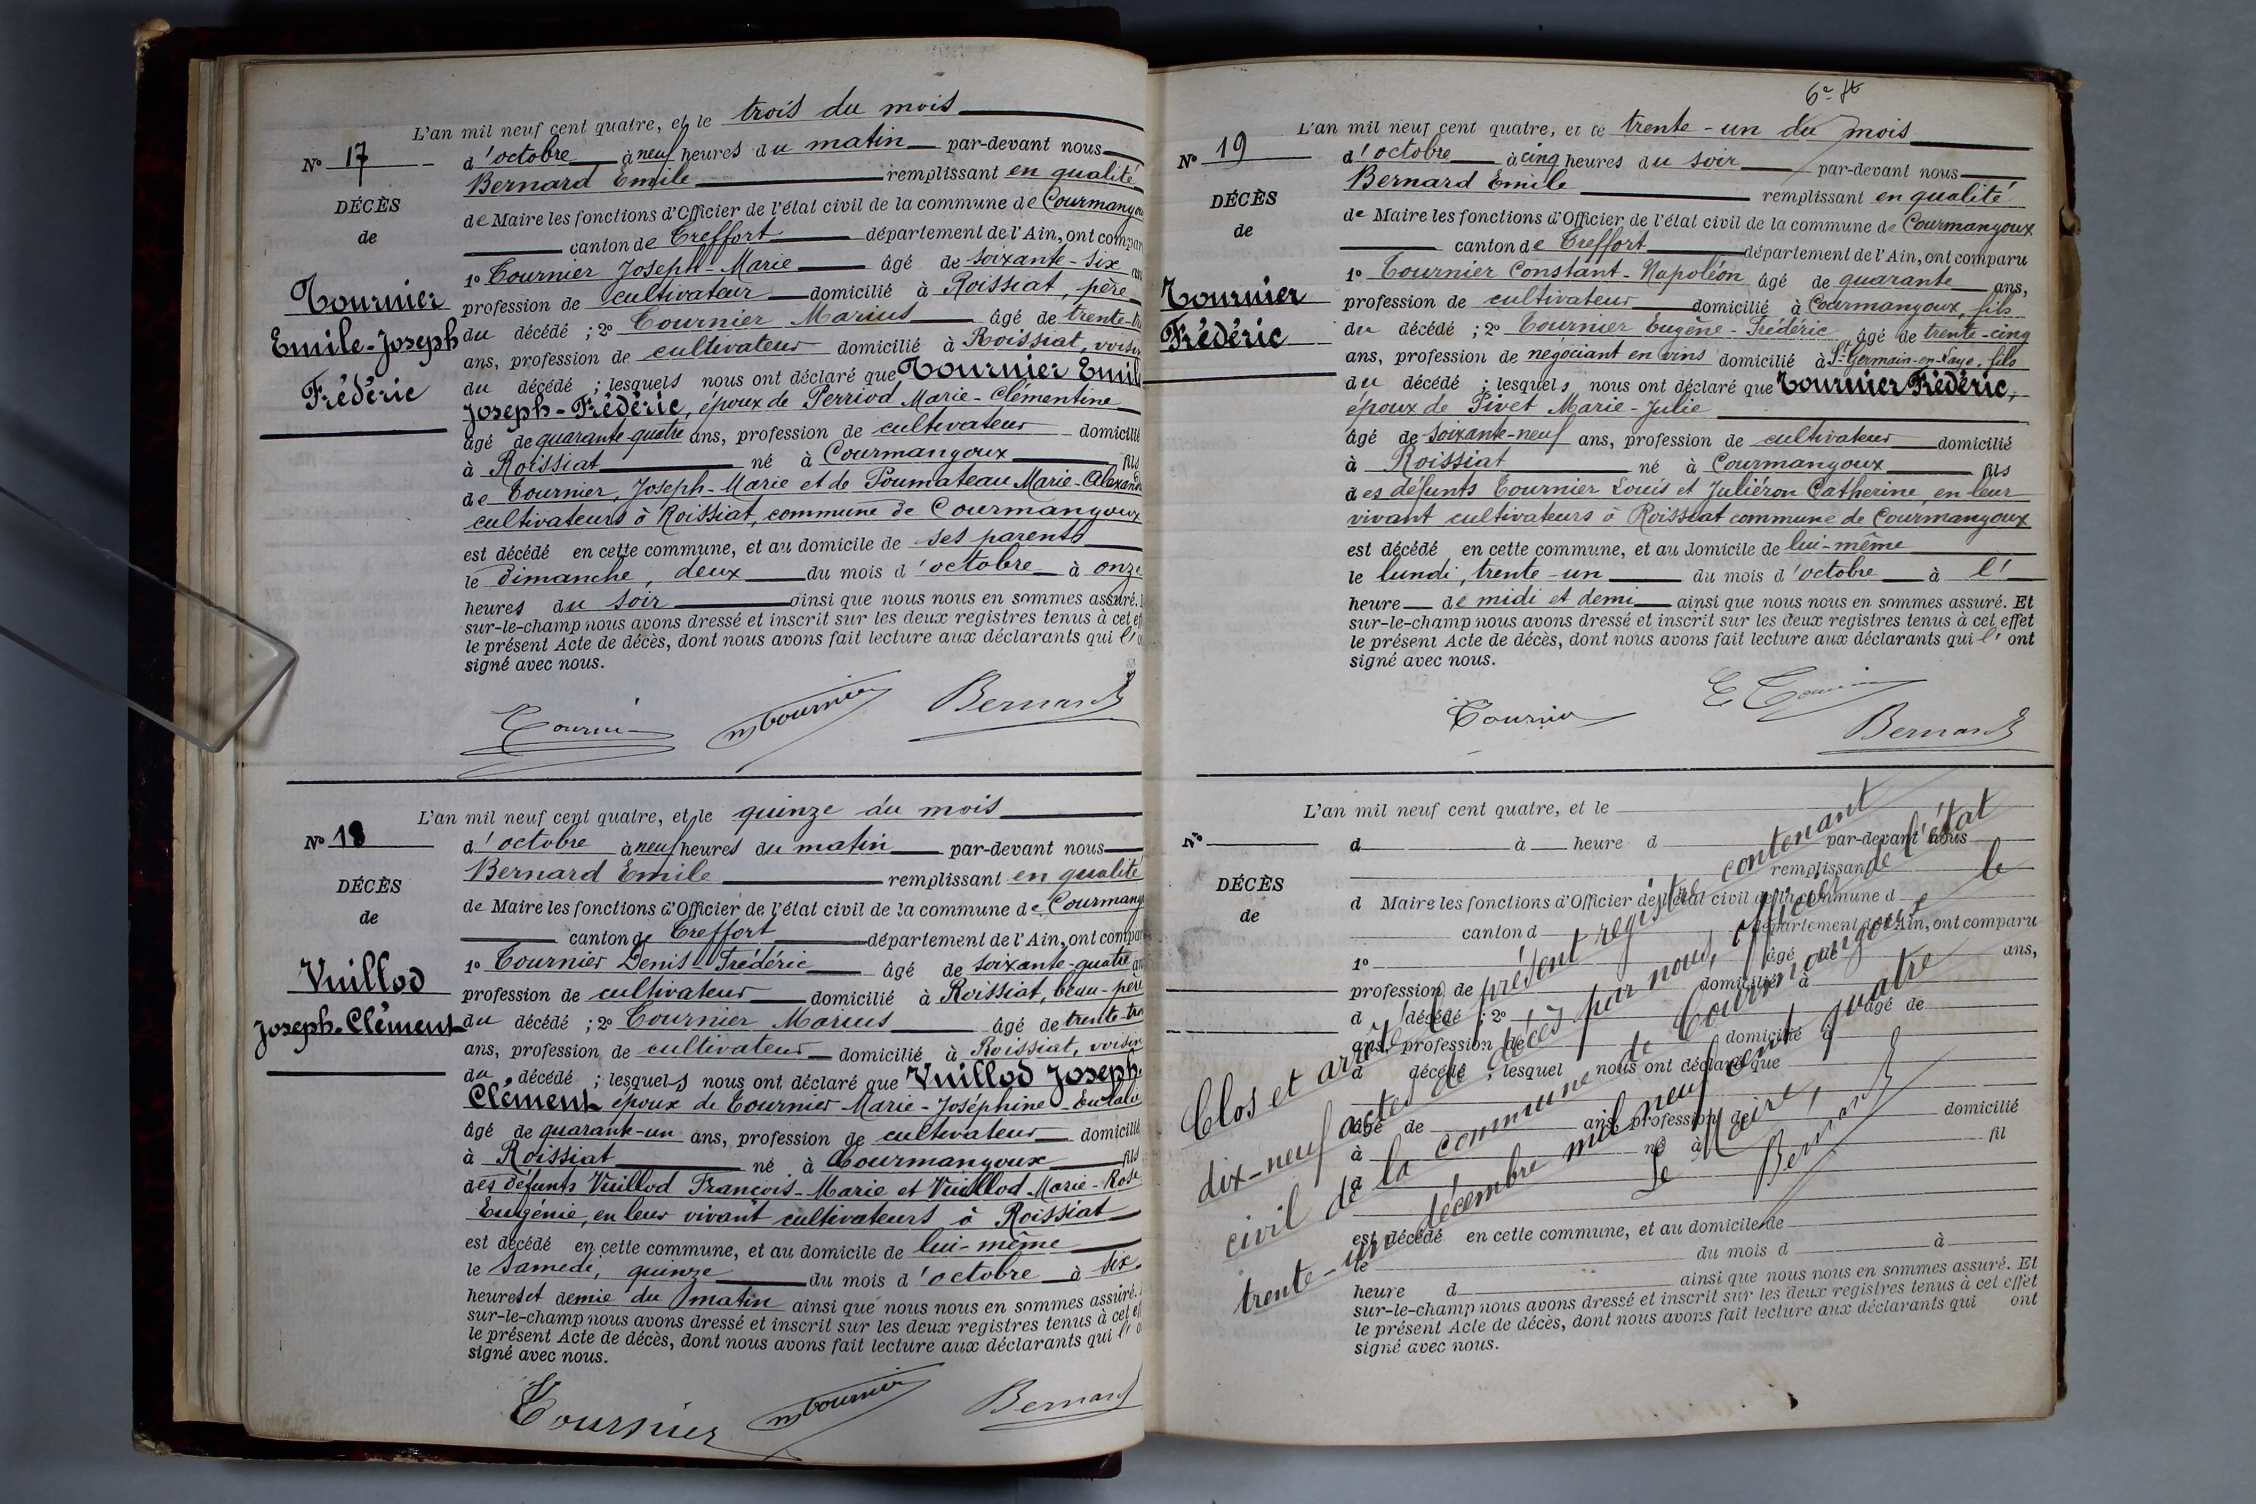 L'an mil neuf cent quatre, et le trois du mois
N° 17
d'octobre à neuf heures du matin par-devant nous
Bernard Emile remplissant en qualité
DÉCÈS
de Maire les fonctions d'Officier de l'état civil de la commune de Courmangou
de
canton de Treffort département de l'Ain, ont compar
1° Tournier Joseph-Marie âgé de soixante-six an
Tournier
profession de cultivateur domicilié à Roissiat, père
Emile-Joseph
du décédé ; 2° Tournier Marius âgé de trente-tr
ans, profession de cultivateur domicilié à Roissiat, voisin
Frédéric
du décédé ; lesquels nous ont déclaré que Tournier Emil
Joseph-Frédéric, époux de Perriod Marie-Clémentine
âgé de quarante-quatre ans, profession de cultivateur domicilié
à Roissiat né à Courmangoux fils
de Tournier, Joseph-Marie et de Poumateau Marie-Alexand
cultivateurs à Roissiat, commune de Courmangoux
est décédé en cette commune, et au domicile de ses parents
le dimanche, deux du mois d'octobre à onze
heures du soir ainsi que nous nous en sommes assuré.
sur-le-champ nous avons dressé et inscrit sur les deux registres tenus à cet ef
le présent Acte de décès, dont nous avons fait lecture aux déclarants qui l'o
signé avec nous.
Tournier M Tournier Bernard
L'an mil neuf cent quatre, et le quinze du mois
N° 18
d'octobre à neuf heures du matin par-devant nous
Bernard Emile remplissant en qualité
DÉCÈS
de Maire les fonctions d'Officier de l'état civil de la commune de Courmang
de
canton de Treffort département de l'Ain, ont compar
1° Tournier Denis-Frédéric âgé de soixante-quatre an
Vuillod
profession de cultivateur domicilié à Roissiat, beau-père
Joseph-Clément
du décédé ; 2° Tournier Marius âgé de trente-troi
ans, profession de cultivateur domicilié à Roissiat, voisin
du décédé ; lesquels nous ont déclaré que Vuillod Joseph-
Clément époux de Tournier-Marie-Joséphine-Eulalie
âgé de quarante-un ans, profession de cultivateur domicilié
à Roissiat né à Courmangoux fils
des défunts Vuillod François-Marie et Vuillod Marie-Rose
Eugénie, en leur vivant cultivateurs à Roissiat
est décédé en cette commune, et au domicile de lui-même
le samedi, quinze du mois d'octobre à six
heures et demie du matin ainsi que nous nous en sommes assuré.
sur-le-champ nous avons dressé et inscrit sur les deux registres tenus à cet ef
le présent Acte de décès, dont nous avons fait lecture aux déclarants qui l'o
signé avec nous.
Tournier M Tournier Bernard
L'an mil neuf cent quatre, et le trente-un du mois
N° 19
d'octobre à cinq heures du soir par-devant nous
Bernard Emile remplissant en qualité
DÉCÈS
de Maire les fonctions d'Officier de l'état civil de la commune de Courmangoux
de
canton de Treffort département de l'Ain, ont comparu
1° Tournier Constant-Napoléon âgé de quarante ans,
Tournier
profession de cultivateur domicilié à Courmangoux, fils
Frédéric
du décédé ; 2° Tournier Eugène-Frédéric âgé de trente-cinq
ans, profession de négociant en vins domicilié à St-Germain-en-Laye, fils
du décédé ; lesquels nous ont déclaré que Tournier Frédéric,
époux de Pivet Marie-Julie
âgé de soixante-neuf ans, profession de cultivateur domicilié
à Roissiat né à Courmangoux fils
des défunts Tournier Louis et Juliéron Catherine, en leur
vivant cultivateurs à Roissiat commune de Courmangoux
est décédé en cette commune, et au domicile de lui-même
le lundi, trente-un du mois d'octobre à l'
heure de midi et demi ainsi que nous nous en sommes assuré. Et
sur-le-champ nous avons dressé et inscrit sur les deux registres tenus à cet effet
le présent Acte de décès, dont nous avons fait lecture aux déclarants qui l'ont
signé avec nous.
Tournier E Tournier
Bernard
L'an mil neuf cent quatre, et le
N°
d à heure d par-devant nous
remplissant
DÉCÈS
d Maire les fonctions d'Officier de l'état civil de la commune d
de
canton d département de l'Ain, ont comparu
1° âgé de ans,
profession de domicilié à
d décédé ; 2° âgé de
ans, profession de domicilié à
d décédé ; lesquel nous ont déclaré que
âgé de ans, profession de domicilié
à né à fil
d
est décédé en cette commune, et au domicile de
le du mois d à
heure d ainsi que nous nous en sommes assuré. Et
sur-le-champ nous avons dressé et inscrit sur les deux registres tenus à cet effet
le présent Acte de décès, dont nous avons fait lecture aux déclarants qui ont
signé avec nous.
Clos et arrêté le présent registre contenant
dix-neuf actes de décès par nous, officier de l'état
civil de la commune de Courmangoux le
trente-un décembre mil neuf cent quatre
Le Maire,
Bernard